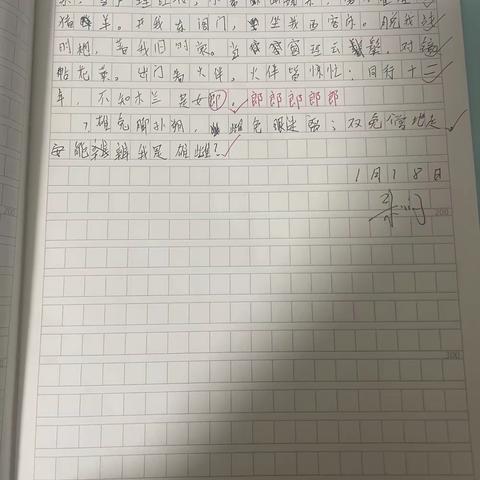 猪羊。开我东阁门，坐我西客床。脱我战
时袍，著我旧时裳。当窗理云鬓，对镜
帖花黄。出门看火伴，火伴皆惊忙：同行十二
年，不知木兰是女郎。郎郎郎郎郎
雄兔脚扑朔，雌兔眼迷离；双兔傍地走，
安能辨我是雄雌？
1月18日
200
200
300